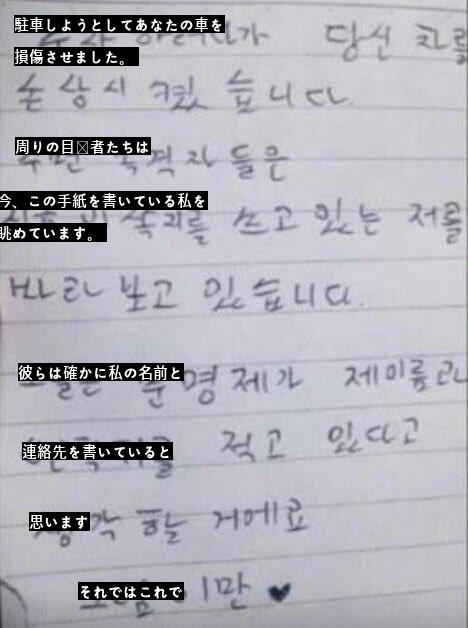 駐車しようとしてあなたの車を
당신 차를
損傷させました。
손상시켰습니다.
周りの目 者たちは
격자들은
今、この手紙を書いている私を
쓰고 있는 저를
眺めています。
바라보고 있습니다.
彼らは確かに私の名前と
명 제가 제 이름과
連絡先を書いていると
적고 있다고
思います
할 거에요
それではこれで
이만 ♥